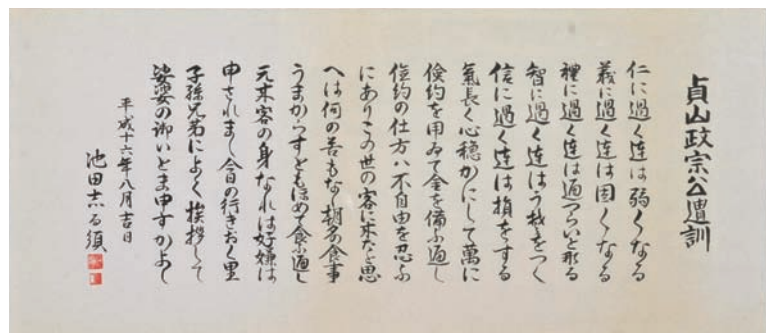 貞山政宗公遺訓
仁に過く連は弱くなる
義に過く連は固くなる
禮に過く連は遍つらいと那る
智に過く連はうをつく
信に過く連は損をする
氣長く心穏かにして萬に
倹約を用ゐて金を備ふ遍し
倹約の仕方ハ不自由を忍ふ
にありこの世の客に来たと思
へは何の苦もなし朝夕の食事
うまからすともほめて食ふ遍し
元来客の身なれは好嫌は
申されまし今日の行きおく里
子孫兄弟によく挨拶して
娑婆の御いとま申すかよし
平成十六年八月吉日
池田